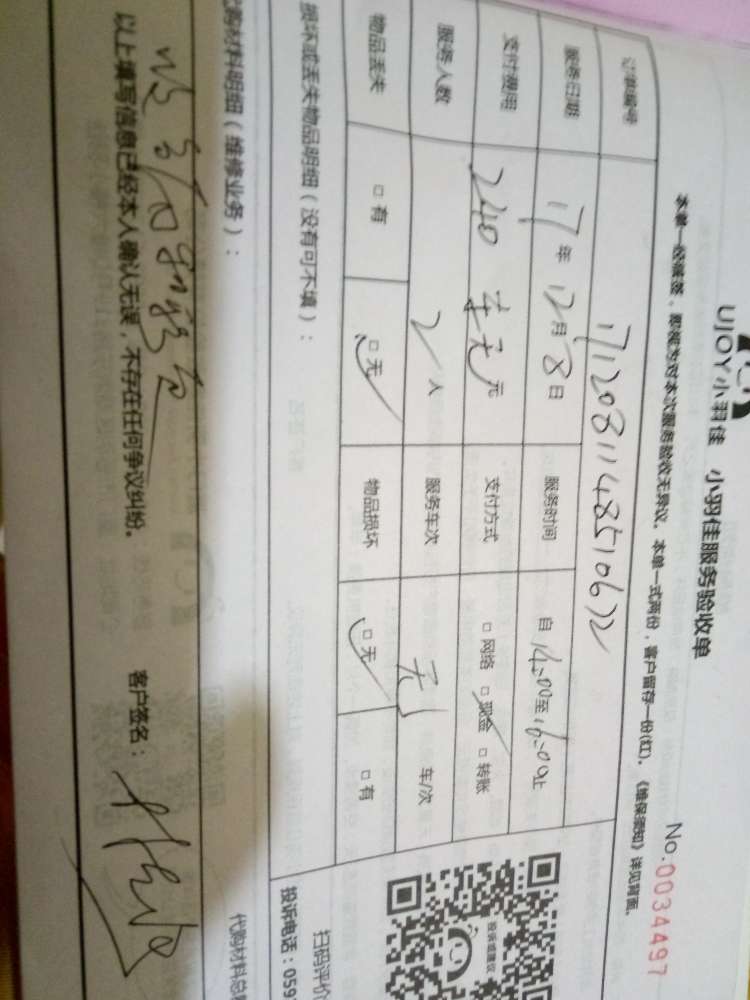 UJOY小羽佳 小羽佳服务验收单
No.0034497
本单一经缄签，即视为对本次服务验收无异议。本单一式两份，客户留存一份(红)。《维保须知》详见背面。
订单编号 1712081148510612
服务日期 17年12月8日 服务时间 自14:00至16:00止
支付费用 240 元 支付方式 □网络 □现金 □转账
服务人数 2人 服务车次 无 车/次
物品丢失 □有 □无 物品损坏 □无 □有
损坏或丢失物品明细（没有可不填）：
扫码评价
投诉电话：059
代购材料明细（维修业务）：
代购材料总
以上填写信息已经本人确认无误，不存在任何争议纠纷。 客户签名：